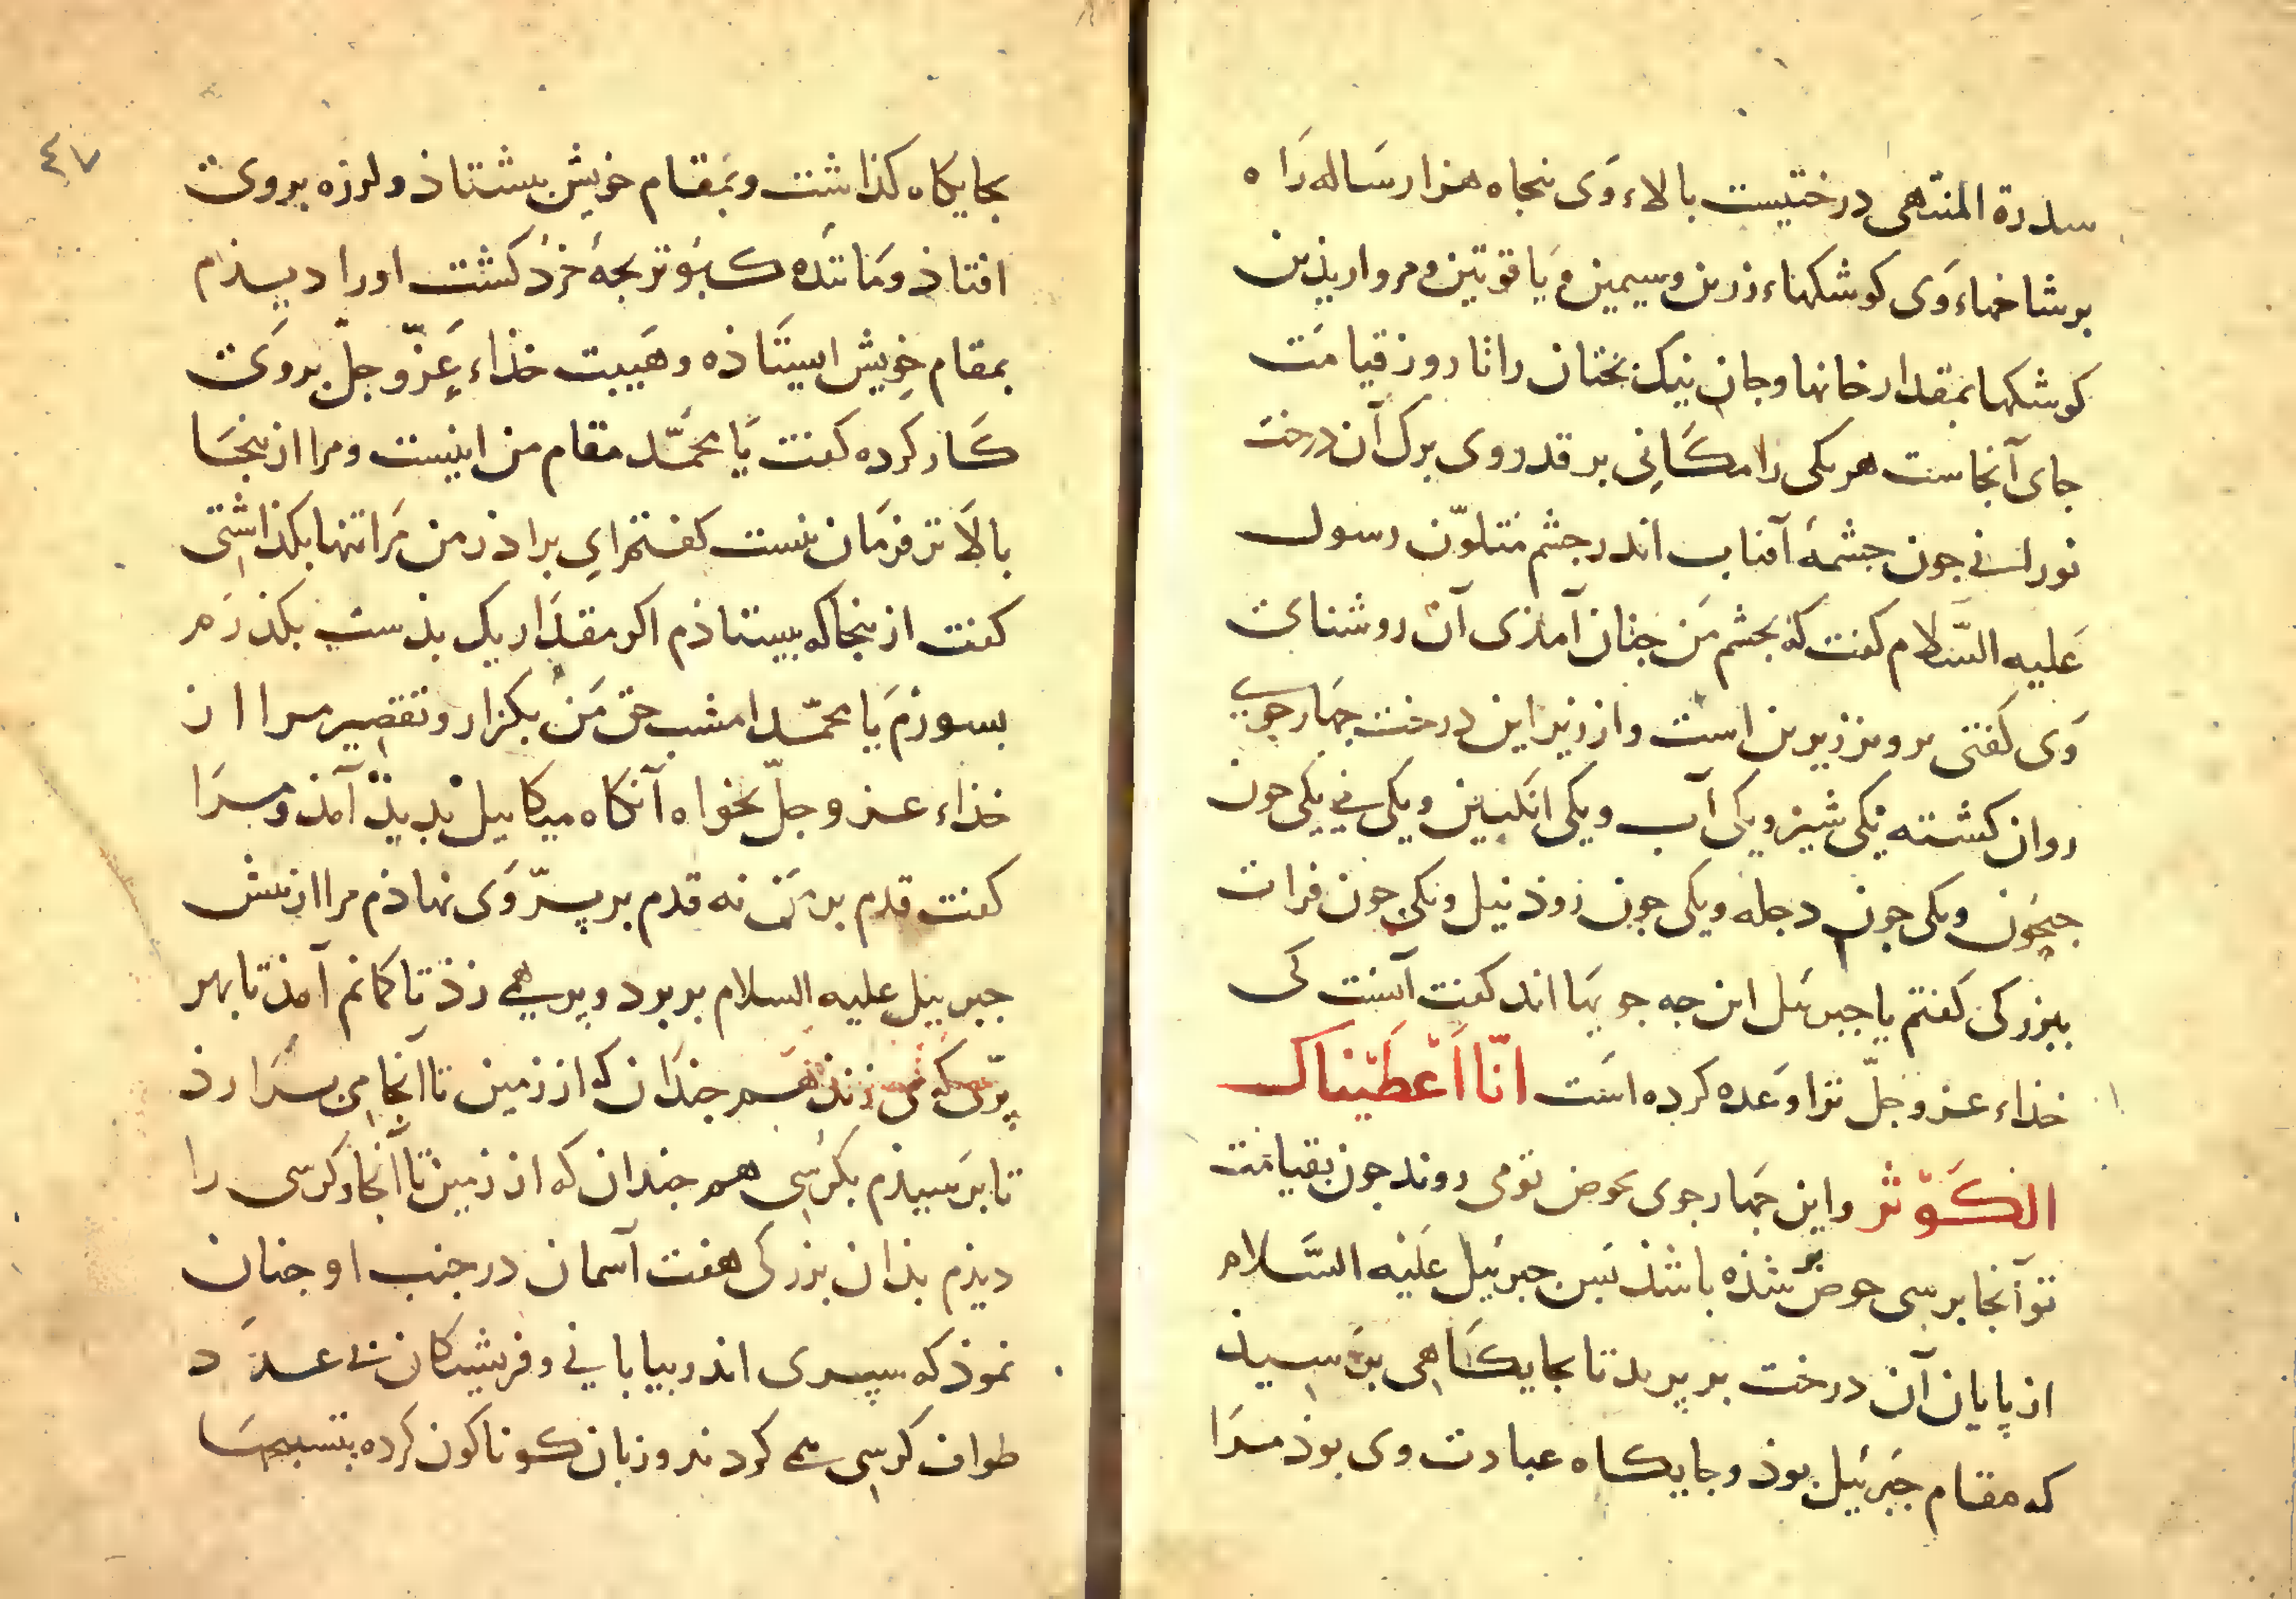 سدرة المنتهی درختیست بالاء وَی پنجاه هزار سَاله رَاه
بر شاخهاء وَی کوشکهاء زرین و سیمین و یَاقوتین و مرواریذین
کوشکها بمقدار خانها و جان نیک بختان را تا روز قیامَت
جای آنجاست هر یکی را مکَانِی بر قدر وی برک آن درخت
نورانی جون جشمهٔ آفتاب اندر جشم متلوّن رسول
عَلیه السَّلام کفت که بجشم مَن جنان آمذی آن روشنائ
وَی کفتی برونز زیرین است و از زیر این درخت جهار جوی
روان کشته یکی شیر و یکی آب و یکی انکبین و یکی می یکی جون
جیحُون و یکی جون دجله و یکی جون روذ نیل و یکی جون فرات
ببزرکی کفتم یا جبرئیل این جه جویهَا اند کفت آنست کی
خذاء عز و جلّ ترا وَعده کرده است انّا اَعْطَیْناک
الکَوْثر و این جهار جوی بحوض تو می روند جون بقیامت
تو آنجا برسی حوض پر شذه باشذ پس جبرئیل عَلَیْه السَّلام
از پایان آن درخت بر پرید تا بجایکَاهِی برَسیذ
که مقام جبَرئیل بوذ و جایکاه عبادت وی بوذ مرَا
٤٧
بجایکاه کذاشت و بمَقام خویش بیستاذ و لرزه بر وی
افتاذ و مَانَنده کبوتر بجهٔ خرُد کَشت او را دیذم
بمقام خویش ایستَاذه و هَیبت خذاء عزّ و جلّ بر وَی
کَار کرده کفت یَا محمَّد مقام من اینست و مرا ازینجَا
بالَا تر فرمَان نیست کفتم ای براذر من مَرا تنها بکذاشتی
کفت ازینجا که بیستاذم اکر مقدَار یک بذست بکذرَم
بسوزم یَا محمّد امشب حق مَن بکزار و تقصیر مرا از
خذاء عز و جلّ بخواه آنکاه میکاییل بذیذ آمذ و مرَا
کفت قدم بر من نه قدم بر پرّ وَی نهاذم مرا از پیش
جبرییل علیه السلام بربود و پر همی زذ تا کمانم آمذ تا بهر
پرّی که می زند هم جندَان که از زمین تا آنجا می سرَارذ
تا برَسیذم بکرُسِی هم جندان که از زمین تا آنجا و کرسی را
دیذم بذان بزرکی هفت آسمان در جنب او جنان
نموذ که سپری اندر بیابانی و فریشتکان بی عدَد
طواف کرسی می کردند و زبان کوناکون کرده بتسبیحهَا